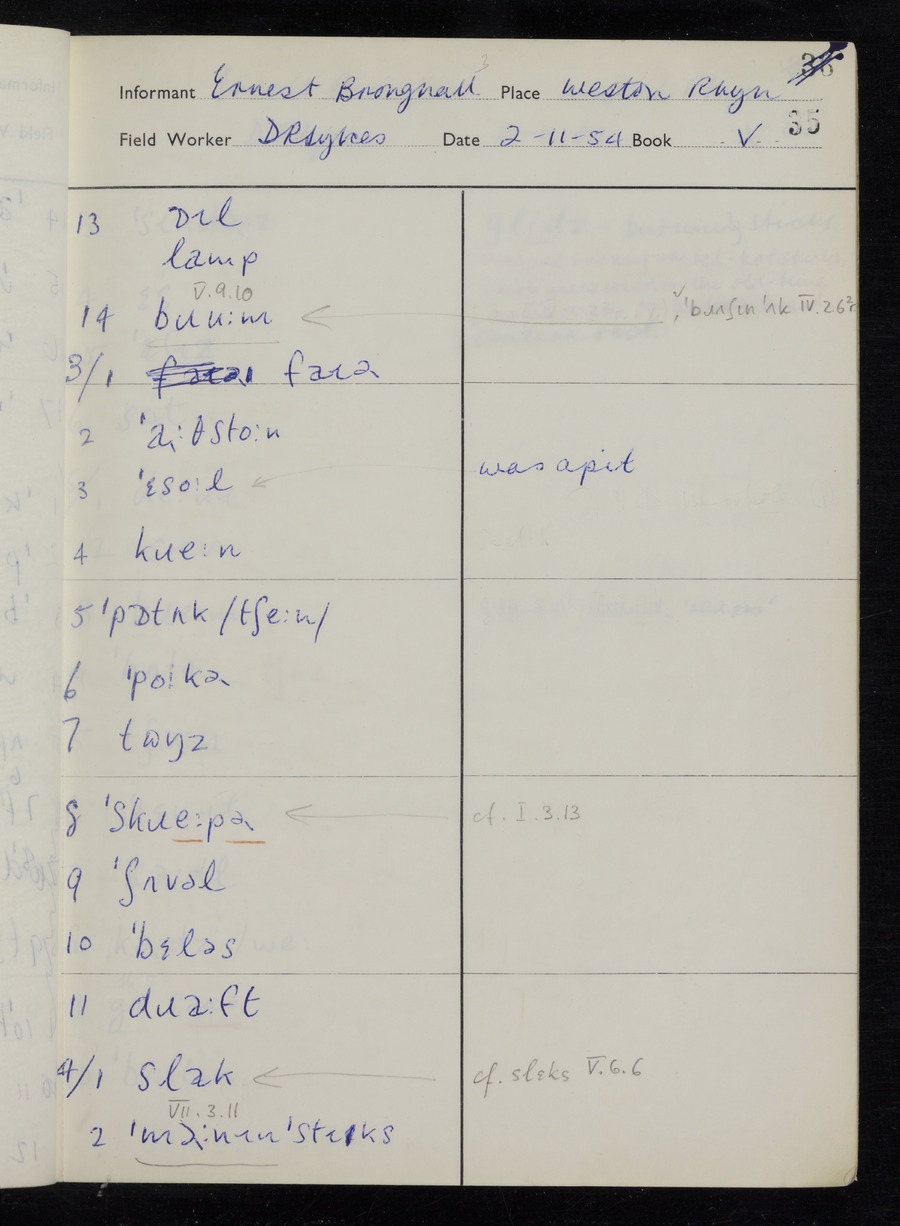 Informant Ernest Brongnall 3 Place Weston Rhyn
Field Worker DRSykes Date 2-11-54 Book V. 35
13 ɒɪl
lamp
V.9.10
14 bɹuːm ˈbɹʌʃɪnˈʌk IV.2.6
3/1 faɪə
2 ˈaːθstoːn
3 ˈɛsoːl was a pit
4 kɹeːn
5 ˈpɒtʌk /tʃeːn/
6 ˈpoːkə
7 tɒŋz
8 ˈskɹeːpə cf. I.3.13
9 ˈʃʌvəl
10 ˈbɛləs
11 dɹaːft
4/1 slak cf. slɛks V.6.6
VII.3.11
2 ˈmaːnɪnˈstɪks